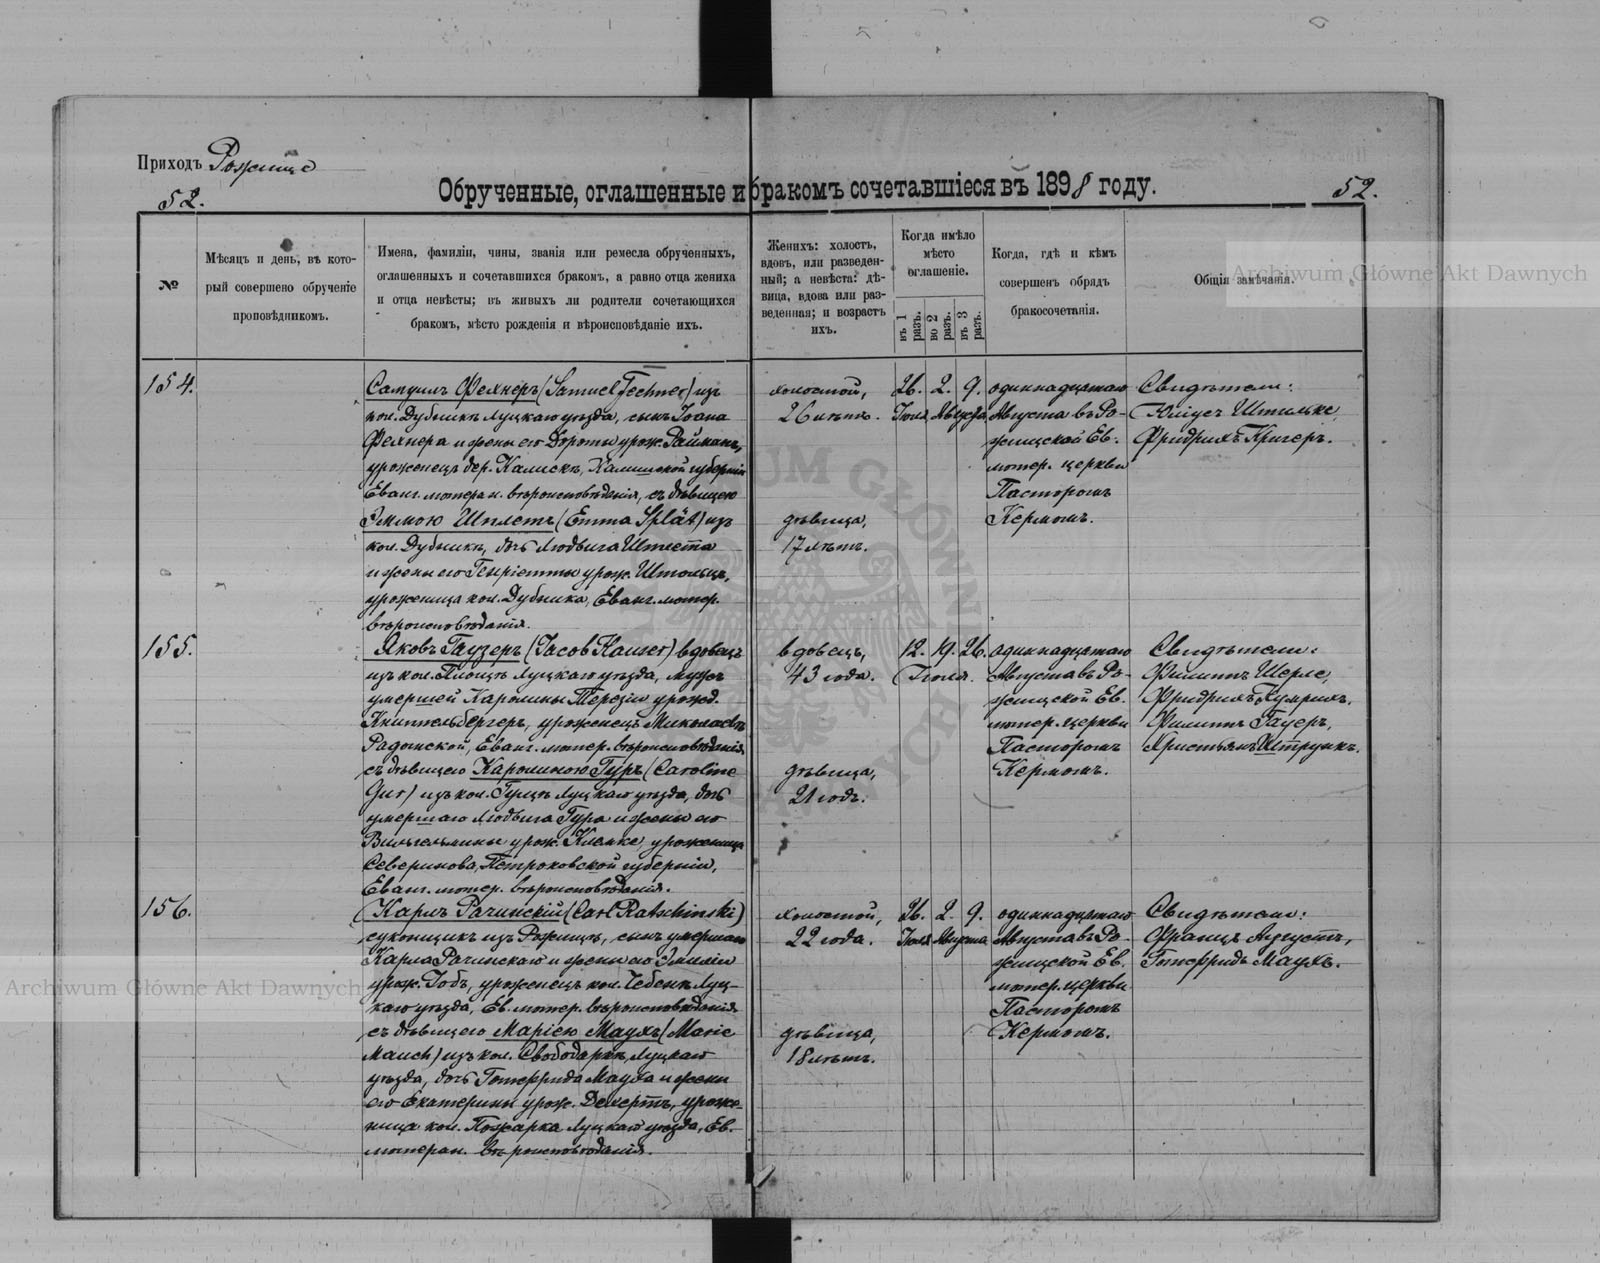 Приходъ Рожище
52.
Обрученные, оглашенные и бракомъ сочетавшіеся въ 1898 году.
52.
№
Мѣсяцъ и день, въ кото-
рый совершено обрученіе
проповѣдникомъ.
Имена, фамиліи, чины, званія или ремесла обрученныхъ,
оглашенныхъ и сочетавшихся бракомъ, а равно отца жениха
и отца невѣсты; въ живыхъ ли родители сочетающихся
бракомъ, мѣсто рожденія и вѣроисповѣданіе ихъ.
Женихъ: холостъ,
вдовъ, или разведен-
ный; а невѣста: дѣ-
вица, вдова или раз-
веденная; и возрастъ
ихъ.
Когда имѣло
мѣсто
оглашеніе.
въ 1 разъ.
во 2 разъ.
въ 3 разъ.
Когда, гдѣ и кѣмъ
совершенъ обрядъ
бракосочетанія.
Общія замѣчанія.
154.
Самуилъ Фехнеръ (Samuel Fechner) изъ
кол. Дубникъ Луцкаго уѣзда, сынъ Іоана
Фехнера и жены его Дороты урож. Райманъ,
уроженецъ дер. Калискъ, Калишской губерніи
Еванг. лютеран. вѣроисповѣданія, съ дѣвицею
Эммою Шплетъ (Emma Splät) изъ
кол. Дубникъ, дочь Людвига Шплета
и жены его Генріетты урож. Штольцъ,
уроженица кол. Дубника, Еванг. лютер.
вѣроисповѣданія.
холостой,
26 лѣтъ.
дѣвица,
17 лѣтъ.
26. 2. 9.
Іюля Августа
одиннадцатаго
Августа въ Ро-
жищской Ев.
лютер. церкви
Пасторомъ
Кермомъ.
Свидѣтели:
Юліусъ Штилке,
Фридрихъ Кригеръ.
155.
Яковъ Гаузеръ (Jacob Hauser) вдовецъ
изъ кол. Луцкаго уѣзда, мужъ
умершей Каролины Терезіи урожд.
Книттельбергеръ, уроженецъ
Радомской, Еванг. лютер. вѣроисповѣданія
съ дѣвицею Каролиною Гуръ (Caroline
Gur) изъ кол. Луцкаго уѣзда, дочь
умершаго Людвига Гура и жены его
Вильгельмины урож. Клемке, уроженица
Северинова, Петроковской губерніи,
Еванг. лютер. вѣроисповѣданія.
вдовецъ,
43 года.
дѣвица,
21 годъ.
12. 19. 26.
Іюля.
одиннадцатаго
Августа въ Ро-
жищской Ев.
лютер. церкви
Пасторомъ
Кермомъ.
Свидѣтели:
Филиппъ Шерле,
Фридрихъ
Филиппъ Гауеръ,
Христьянъ Штрункъ.
156.
Карлъ Рачинскій (Carl Ratschinski)
суконщикъ изъ Рожищъ, сынъ умершаго
Карла Рачинскаго и жены его Эмиліи
урож. Гобъ, уроженецъ кол. Луц-
каго уѣзда, Ев. лютер. вѣроисповѣданія
съ дѣвицею Маріею Маухъ (Marie
Mauch) изъ кол. Свободарки, Луцкаго
уѣзда, дочь Готфрида Мауха и жены
его Екатерины урож. Дехертъ, уроже-
ница кол. Пожарка Луцкаго уѣзда, Ев.
лютеран. вѣроисповѣданія.
холостой,
22 года.
дѣвица,
18 лѣтъ.
26. 2. 9.
Іюля Августа
одиннадцатаго
Августа въ Ро-
жищской Ев.
лютер. церкви
Пасторомъ
Кермомъ.
Свидѣтели:
Францъ Августъ,
Готфридъ Маухъ.
Archiwum Główne Akt Dawnych
Archiwum Główne Akt Dawnych